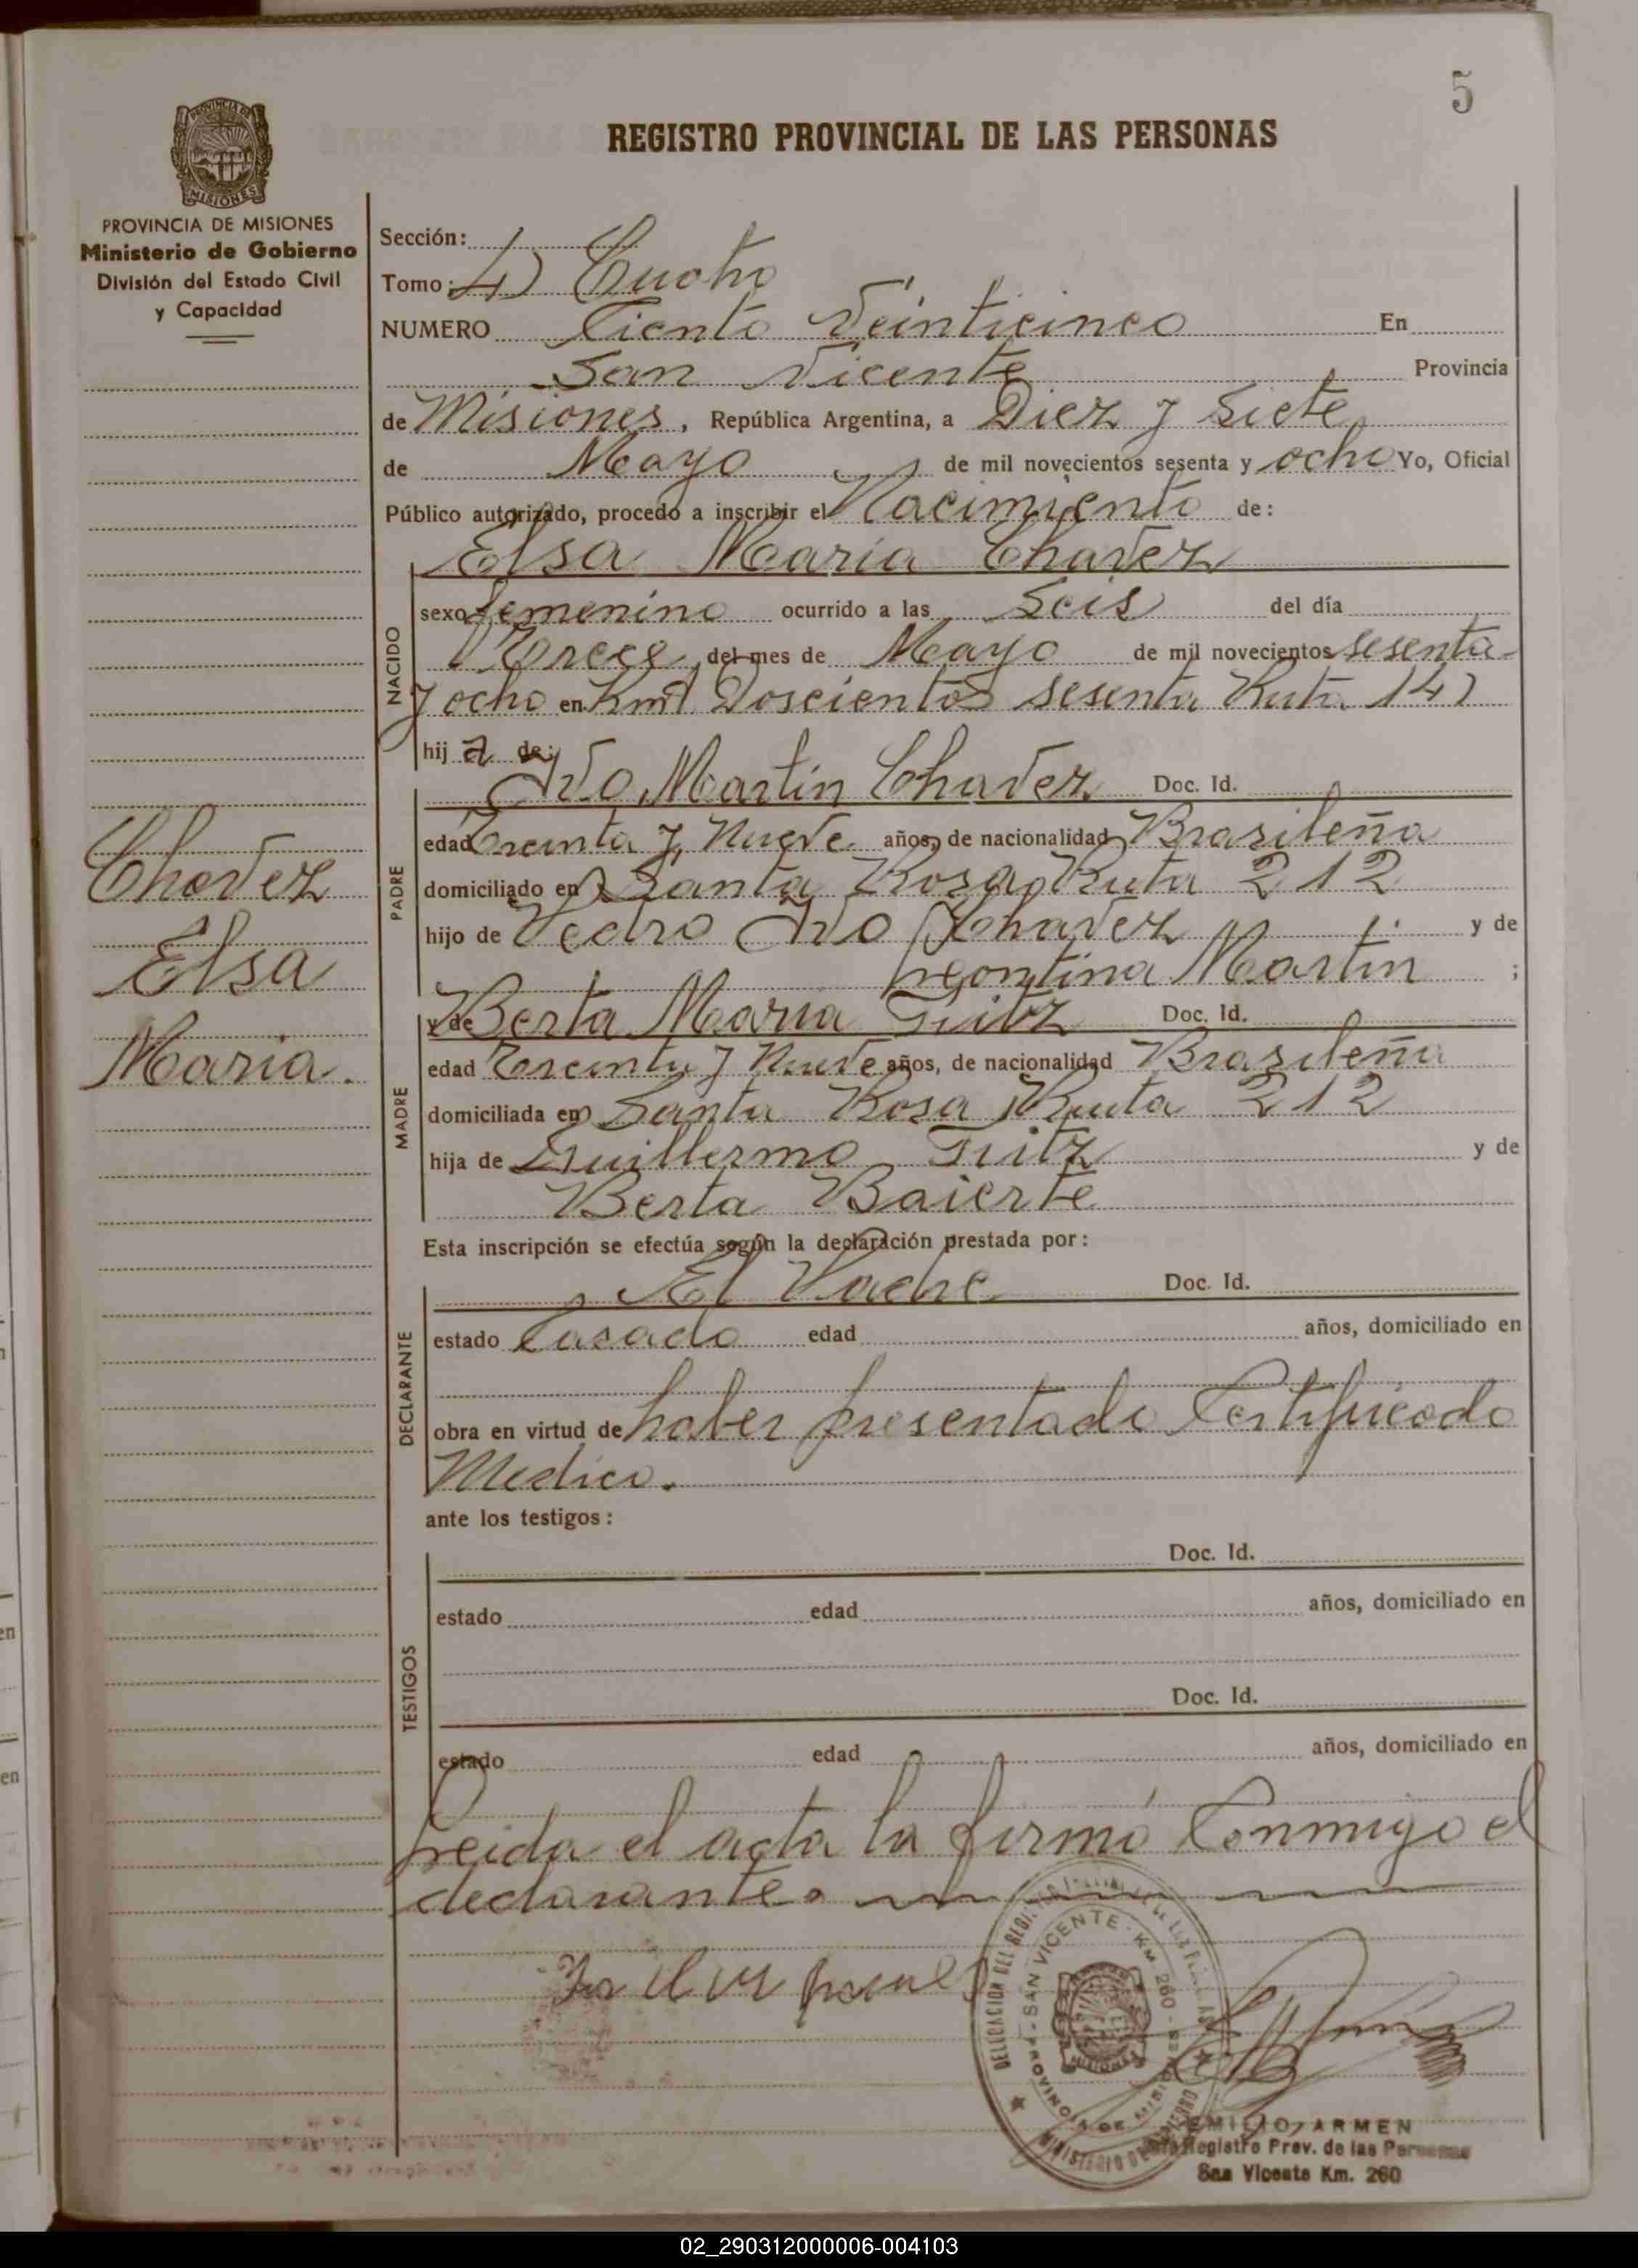 5
REGISTRO PROVINCIAL DE LAS PERSONAS
PROVINCIA DE
MISIONES
PROVINCIA DE MISIONES
Ministerio de Gobierno
División del Estado Civil
y Capacidad
Chavez
Elsa
Maria.
Sección:
Tomo: 4) Cuoto
NUMERO Ciento Veinticinco En
San Vicente Provincia
de Misiones, República Argentina, a Diez y Siete
de Mayo de mil novecientos sesenta y ocho Yo, Oficial
Público autorizado, procedo a inscribir el Nacimiento de:
Elsa Maria Chavez
NACIDO
sexo femenino ocurrido a las Seis del día
Trece del mes de Mayo de mil novecientos sesenta
y ocho en Kmt Doscientos sesenta Ruta 14)
hij a de:
Ivo Martin Chavez Doc. Id.
PADRE
edad Treinta y Nueve años, de nacionalidad Brasileña
domiciliado en Santa Rosa Ruta 212
hijo de Pedro Ivo Chavez y de
Leontina Martin ;
MADRE
y de Berta Maria Doc. Id.
edad Treinta y Nueve años, de nacionalidad Brasileña
domiciliada en Santa Rosa Ruta 212
hija de Guillermo y de
Berta Baierte
Esta inscripción se efectúa según la declaración prestada por:
DECLARANTE
El Padre Doc. Id.
estado Casado edad años, domiciliado en
obra en virtud de haber presentado Certificado
Medico.
ante los testigos:
TESTIGOS
Doc. Id.
estado edad años, domiciliado en
Doc. Id.
estado edad años, domiciliado en
Leida el acta la firmó Conmigo el
declarante.
SAN VICENTE - KM 260
PROVINCIA DE MISIONES
EMILIO ARMEN
Registro Prov. de las Personas
San Vicente Km. 260
02_290312000006-004103